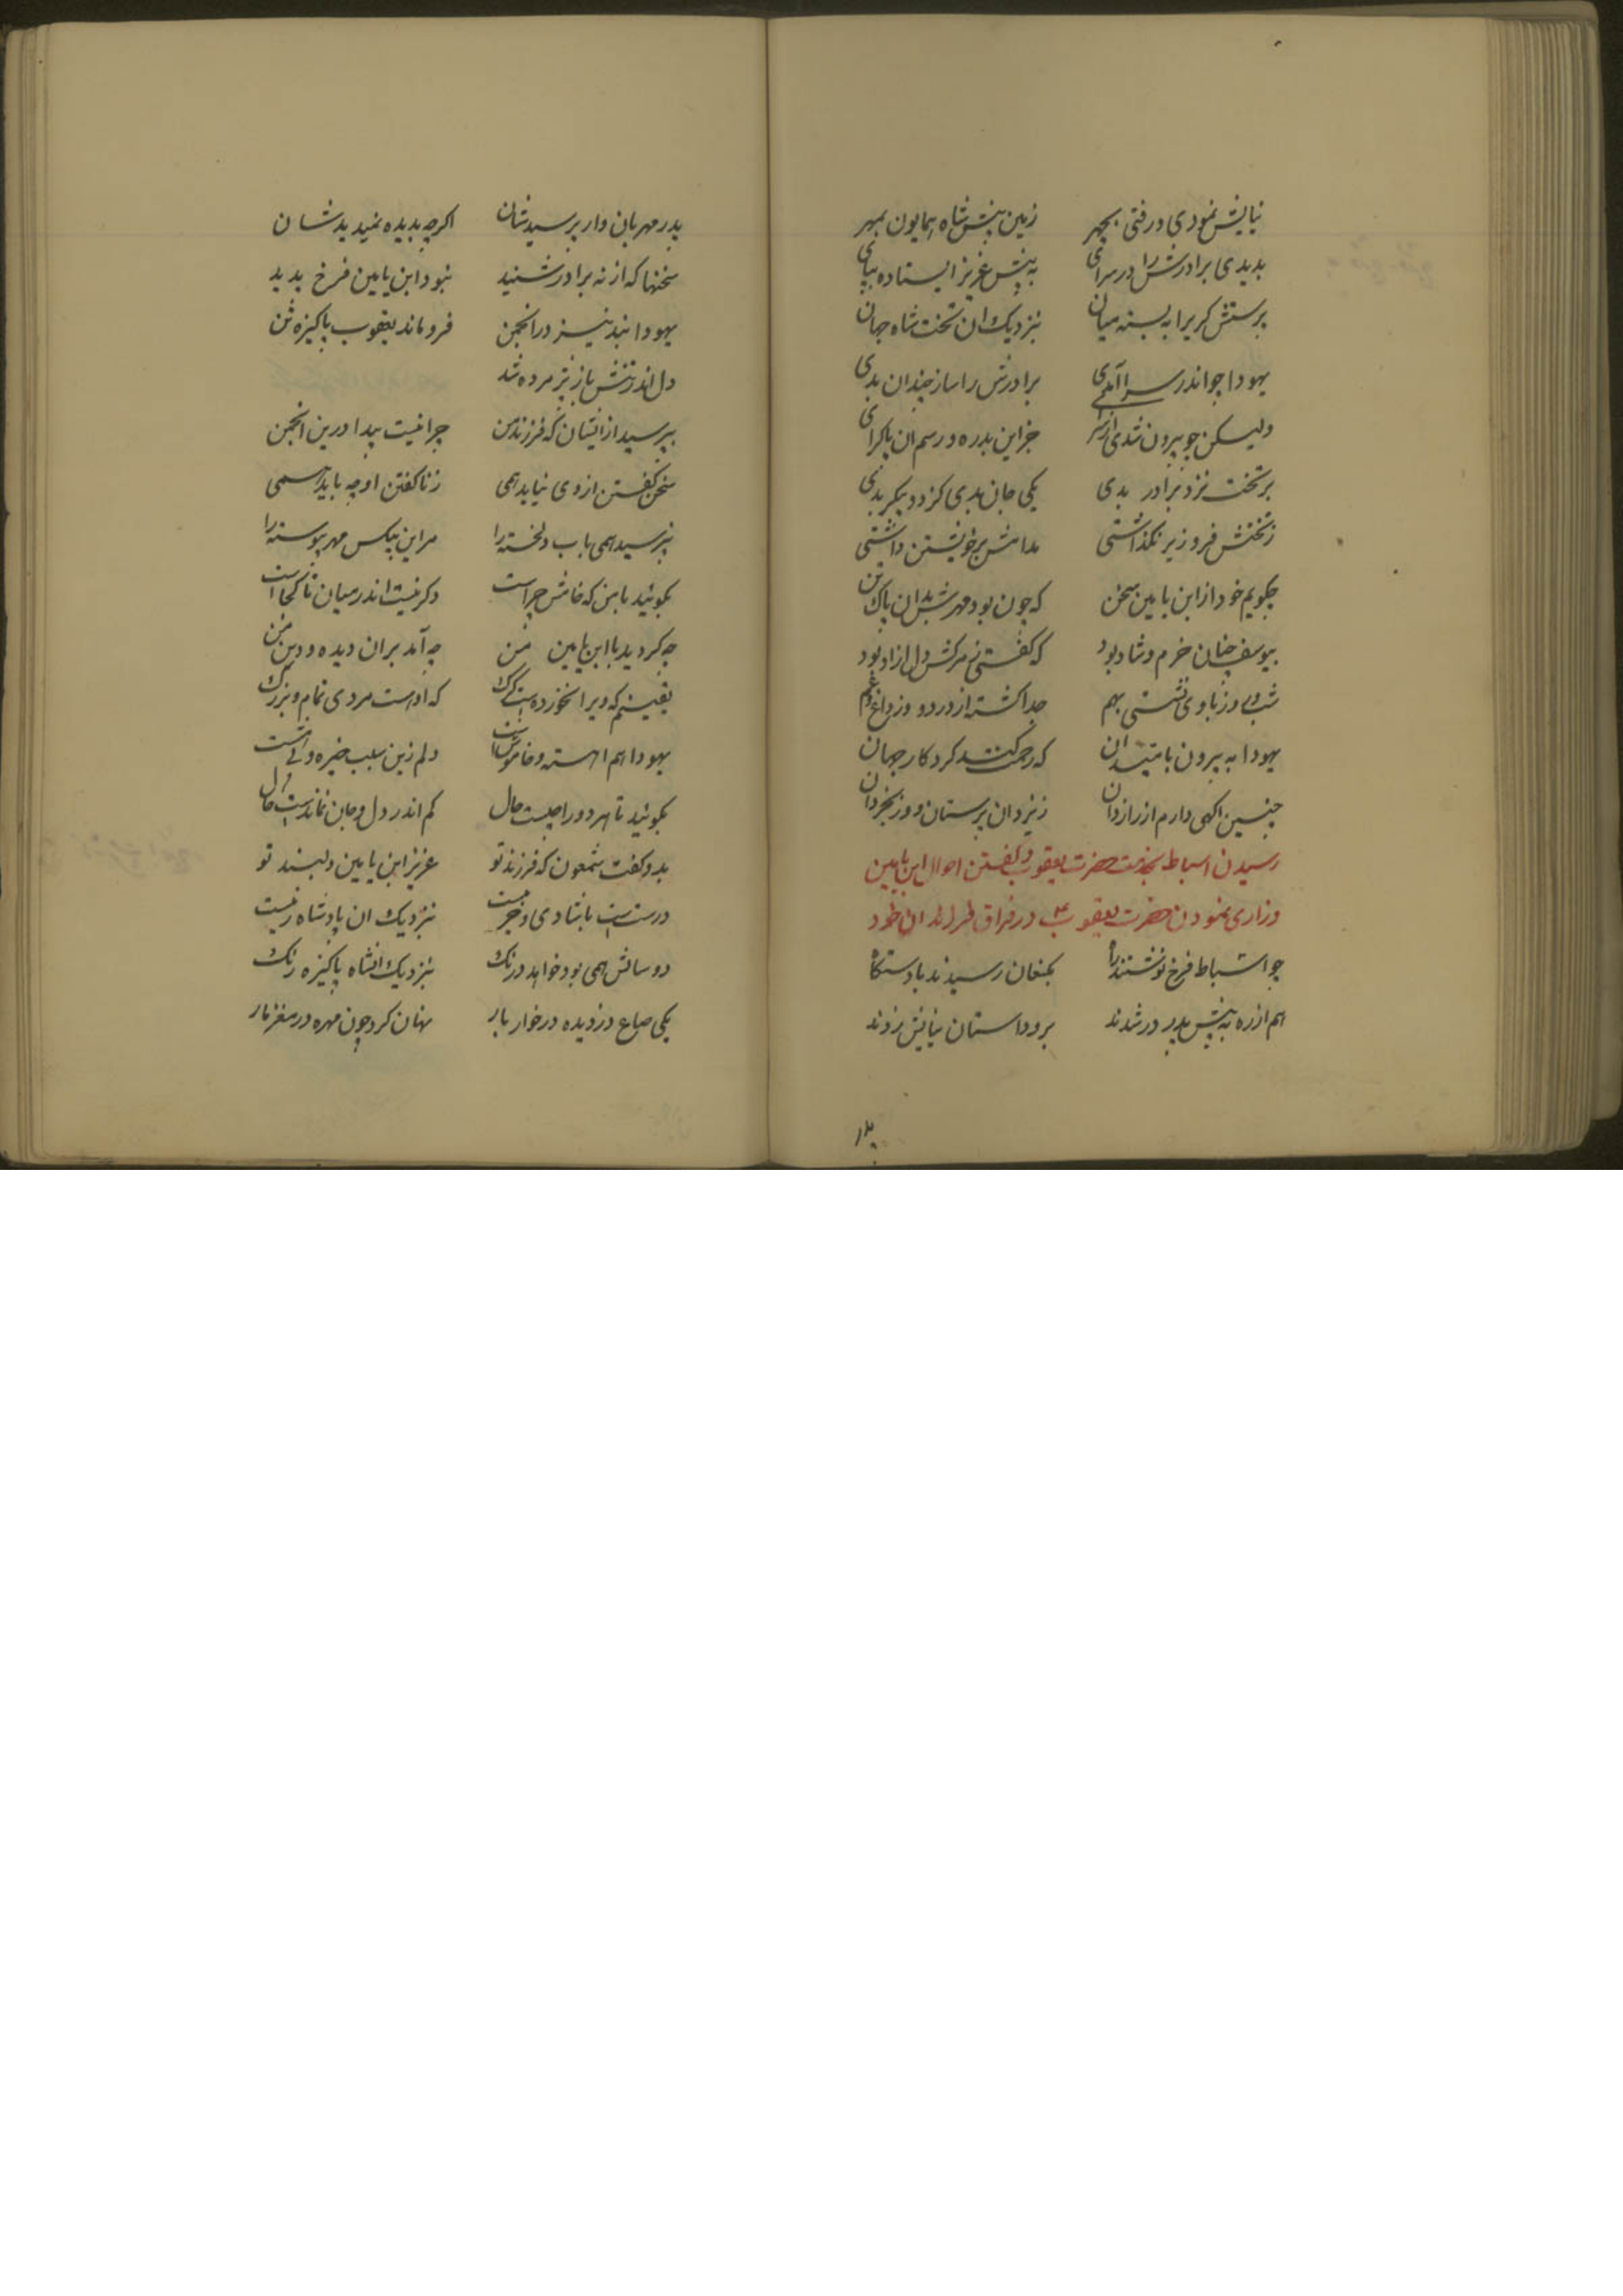 نیایش نمودی و رفتی بچهر زمین پیش شاه همایون بمهر
بدیدی برادرش را در سرای به پیش عزیز ایستاده بپای
پرستش کریرا به بسته میان بنزدیک ان تخت شاه جهان
یهودا چو اندر سرا آمدی برادرش را ساز چندان بدی
ولیکن چو بیرون شدی از سرای جز این بد ره و رسم ان پاکرای
بر تخت نزد برادر بدی یکی جان بدی کز دو پیکر بدی
ز تختش فرو زیر نگذاشتی مدامش بر خویشتن داشتی
چکویم خود از ابن یامین سخن که چون بود مهرش بدان پاک تن
بیوسف چنان خرم و شاد بود که کفتی ز مرکش دل ازاد بود
شب و روز با وی نشستی بهم جدا کشته از درد و وز داغ و غم
یهودا به بیرون با متیدان که رحمت کند کردکار جهان
چنین اکهی دارم از رازدان ز یزدان پرستان و وز بخردان
رسیدن اسباط بخدمت حضرت یعقوب و کفتن احوال ابن یامین
و زاری نمودن حضرت یعقوب ع در فراق فرزندان خود
چو اسباط فرخ نوشتند راه بکنعان رسیدند با دستکاه
هم از ره به پیش پدر در شدند بر و داستان نیایش زدند
پدر مهربان وار پرسیدشان اکرچه بدیده نمیدیدشان
سخنها که از نه برادر شنید نبود ابن یامین فرخ پدید
یهودا نبد نیز در انجمن فرو ماند یعقوب پاکیزه تن
دل اندر تنش باز پژمرده شد
بپرسید از ایشان که فرزند من چرا نیست پیدا درین انجمن
سخن کفتن از وی نیاید همی ز ناکفتن او چه باید همی
بپرسید همی باب دلخسته را مر این بیکس مهر پیوسته را
بکوئید با من که خامش چراست وکر نیست اندر میان تا کجاست
چه کردید با ابن یامین من چه آمد بران دیده و دین من
یقینم که ویرا نخوردست کرک که او هست مردی تمام و بزرک
یهودا هم اهسته و خامش است دلم زین سبب خیره و
بکوئید تا هر دو را چیست حال کم اندر دل و جان نماندست هال
بدو کفت شمعون که فرزند تو عزیز ابن یامین دلبند تو
درست است با شادی و خرمیست بنزدیک ان پادشاه زیست
دو سالش همی بود خواهد درنک بنزدیک انشاه پاکیزه رنک
یکی صاع دزدیده در خوار بار نهان کرد چون مهره در مغز مار